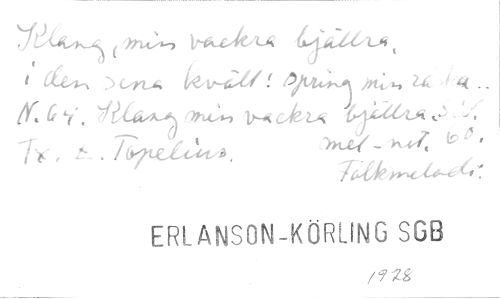 Klang, min vackra bjällra,
i den sena kväll! spring min ..
N. 64. Klang min vackra bjällra.
Tx. Z. Topelius. mel-not. 60.
Folkmelodi.
ERLANSON-KÖRLING SGB
1928